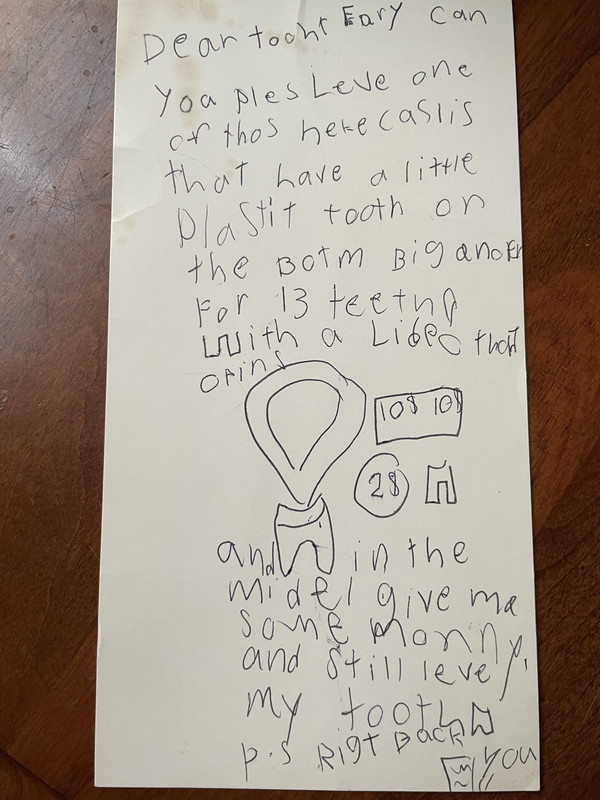 Dear tooht Fary can
yoa ples Leve one
of thos neke casl is
that have a little
plastit tooth on
the Botm Big anoeh
for 13 teeth
with a Lideo that
opins
10$ 10$
2$
and in the
midel give me
some monny,
and still leve
my tooth
p.s Rigt Back
you